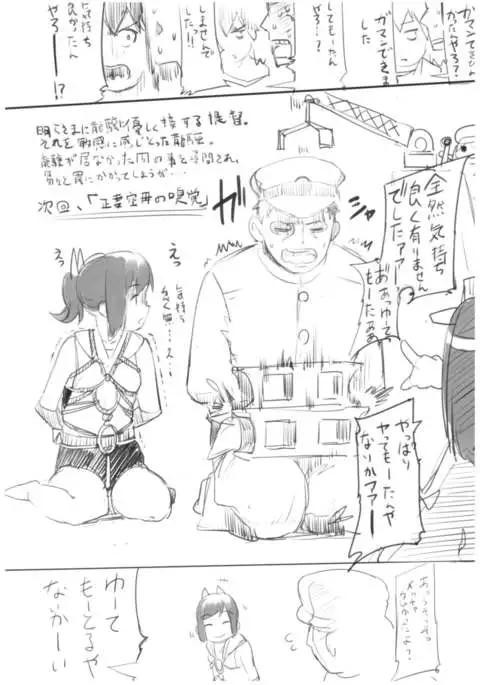 ガマンできひん
かったんやろ?
ガマンできま
した
しても一たん
やろ…?
しませんで
したっ!!
気持ち
良かったん
やろー!?
明らさまに龍驤に優しく接する提督。
それを敏感に感じとった龍驤。
龍驤が居なかった間の事を質問され、
易々と罠にかかってしまうが…
次回、「正妻空母の嗅覚」
ガ
ジャ
全然気持ち
良く有りません
でしたアアー
えっ
えっ
やっぱり
ヤってもーたんや
ないかアアー
ゆーて
もーとるや
ないかーい